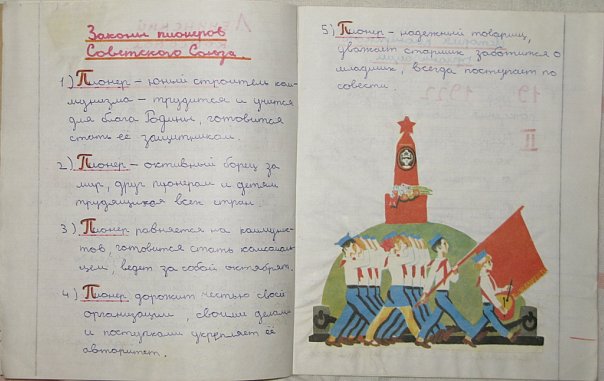 Законы пионеров
Советского Союза.
1) Пионер – юный строитель ком-
мунизма – трудится и учится
для блага Родины, готовится
стать её защитником.
2) Пионер – активный борец за
мир, друг пионерам и детям
трудящихся всех стран.
3) Пионер равняется на коммунис-
тов, готовится стать комсомоль-
цем, ведет за собой октябрят.
4) Пионер дорожит честью своей
организации, своими делами
и поступками укрепляет её
авторитет.
5) Пионер – надежный товарищ,
уважает старших заботится о
младших, всегда поступает по
совести.